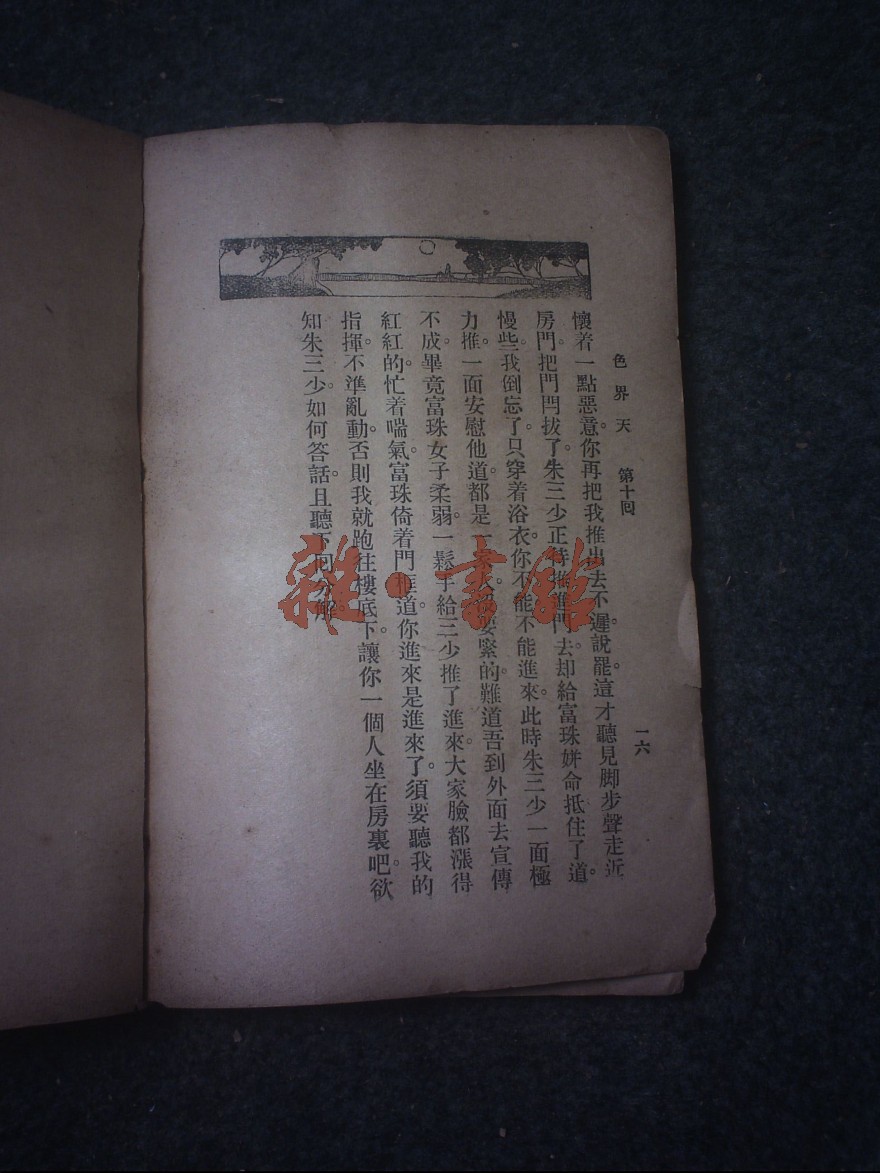 色界天 第十回 一六
懷着一點惡意。你再把我推出去不遲。說罷。這才聽見脚步聲走近
房門。把門閂拔了。朱三少正待推進門去。却給富珠姘命抵住了道。
慢些。我倒忘了。只穿着浴衣。你不能不能進來。此時朱三少一面極
力推一面安慰他道。都是一家人。要緊的。難道吾到外面去宣傳
不成。畢竟富珠女子柔弱。一鬆手給三少推了進來。大家臉都漲得
紅紅的。忙着喘氣。富珠倚着門框道。你進來是進來了。須要聽我的
指揮。不準亂動。否則我就跑往樓底下。讓你一個人坐在房裏吧。欲
知朱三少。如何答話。且聽下回分解。
雜·書館